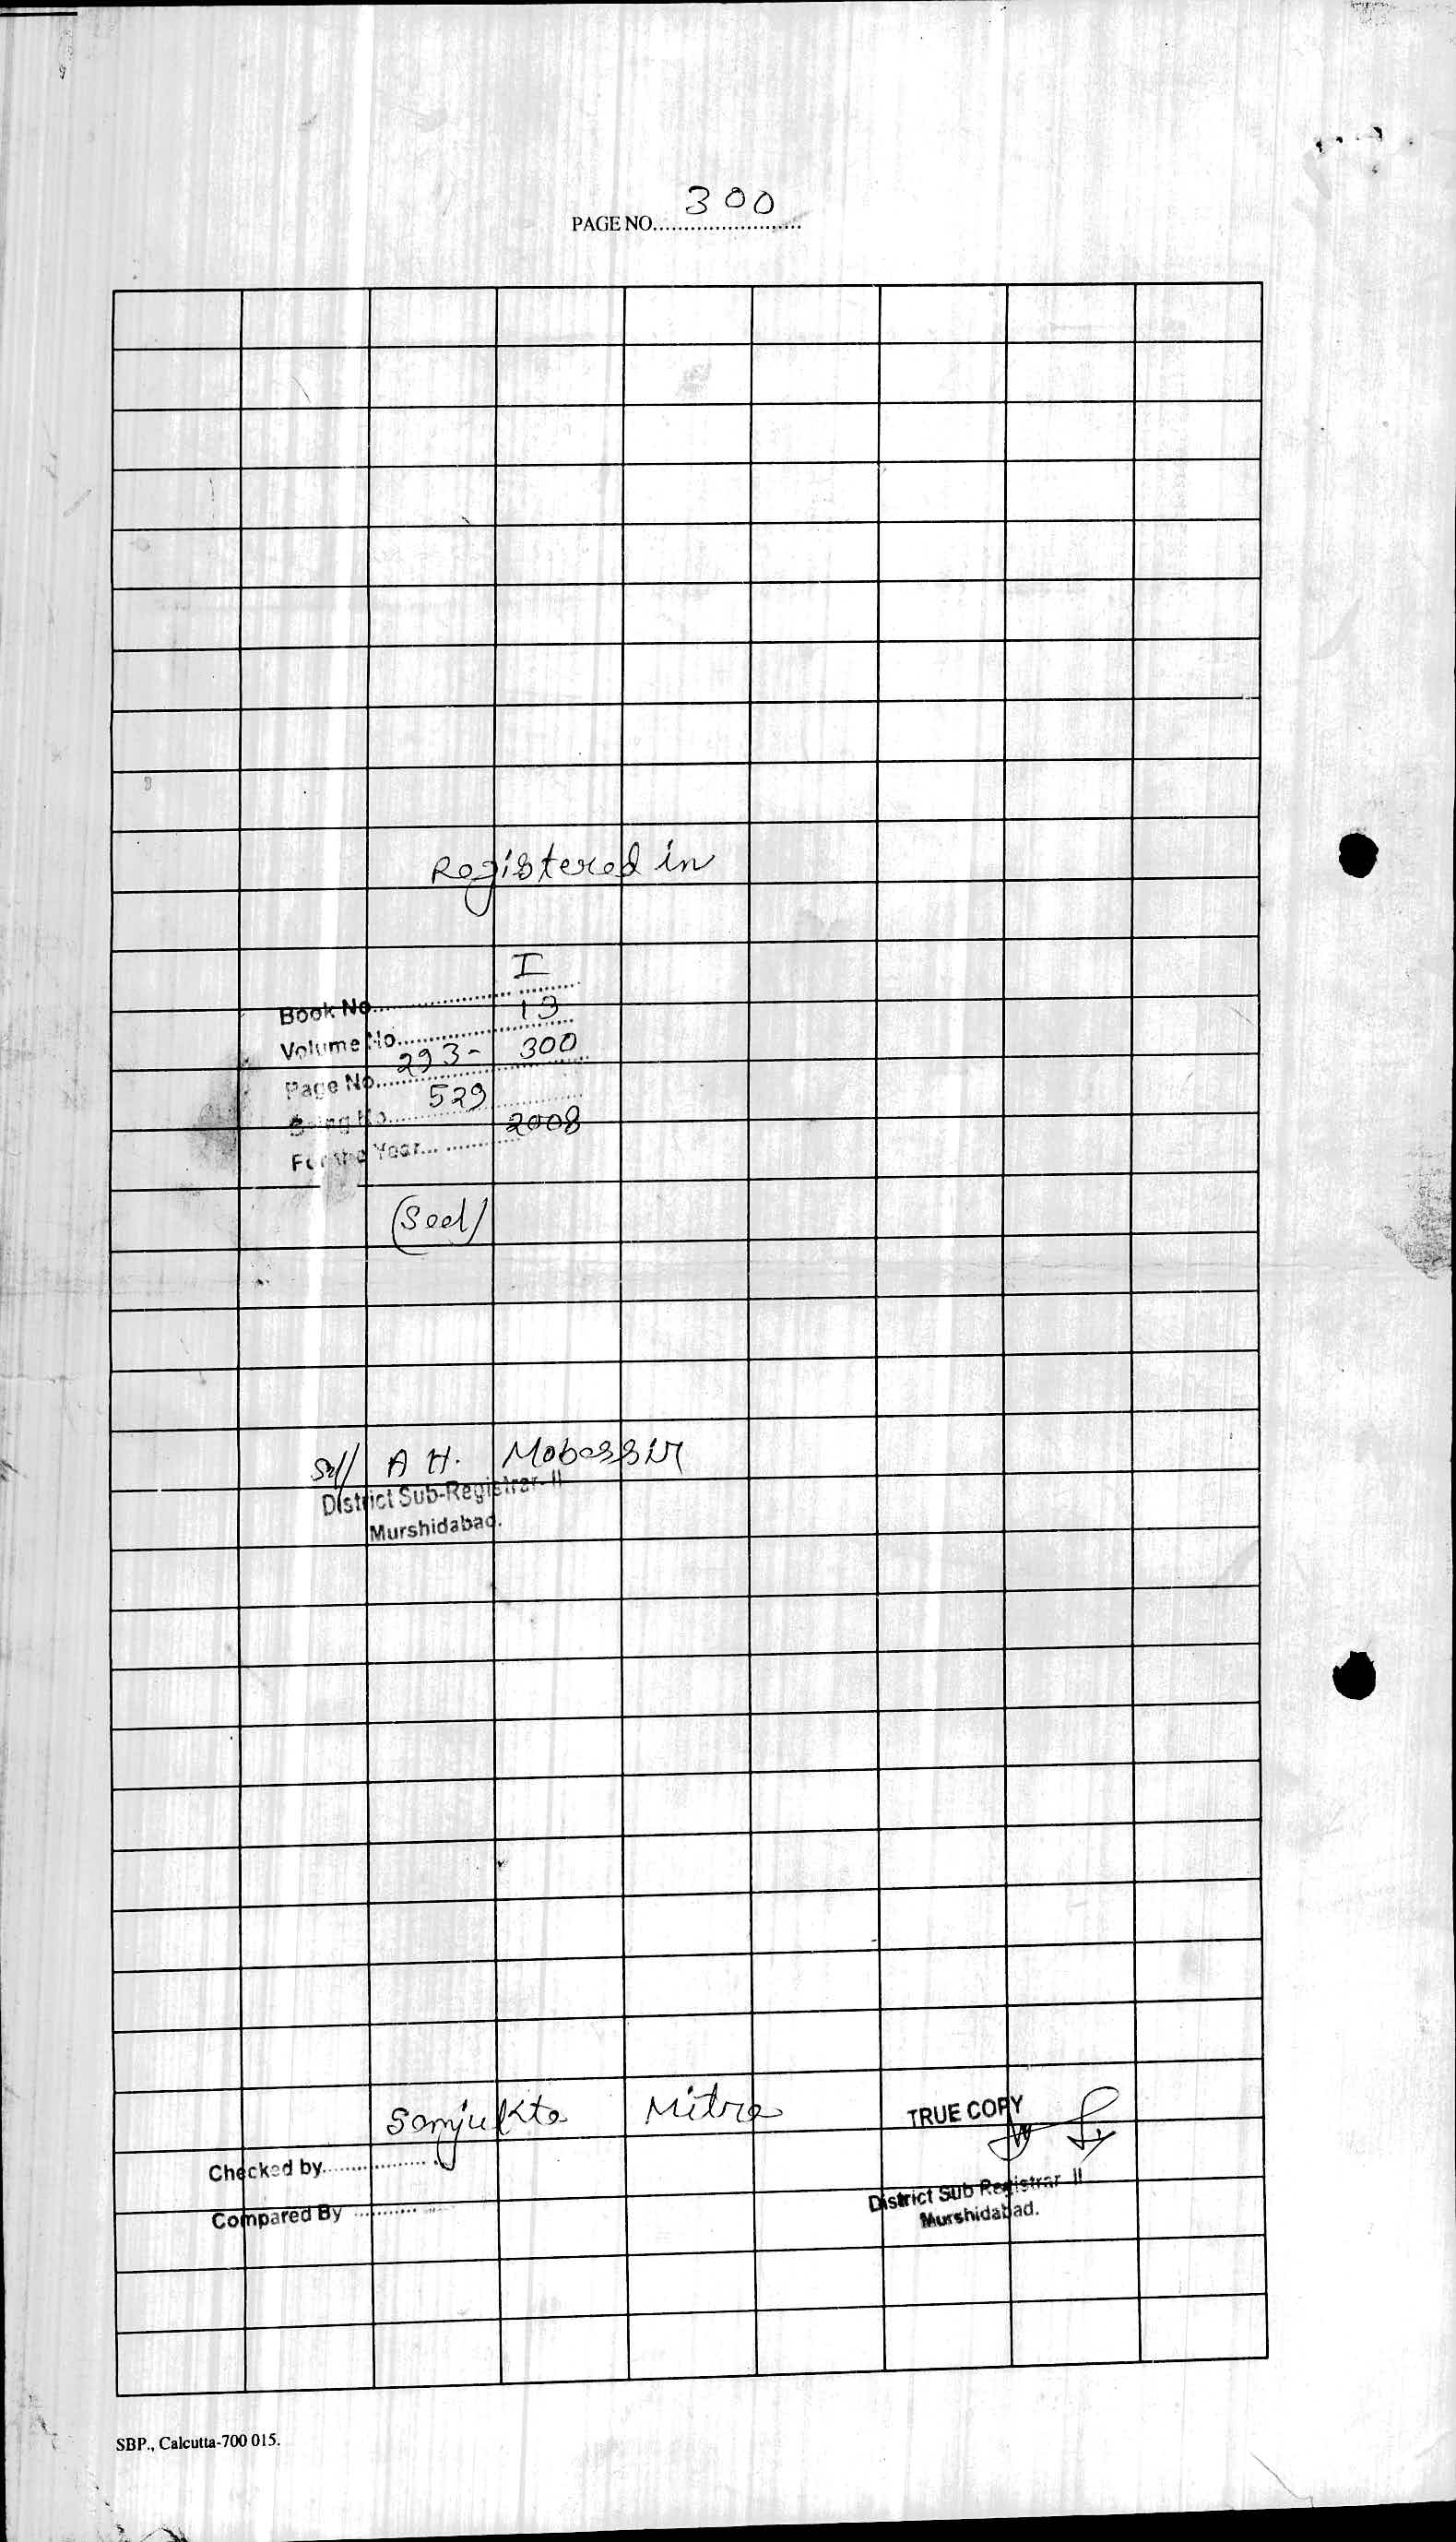 PAGE NO. 300
Registered in
Book No. I
Volume No. 13
Page No. 293- 300
Being No. 529
For the Year 2008
(Seal)
Sd// A H. Mobassir
District Sub-Registrar-II
Murshidabad.
Sanjukta Mitra
Checked by
Compared By
TRUE COPY
District Sub Registrar II
Murshidabad.
SBP., Calcutta-700 015.